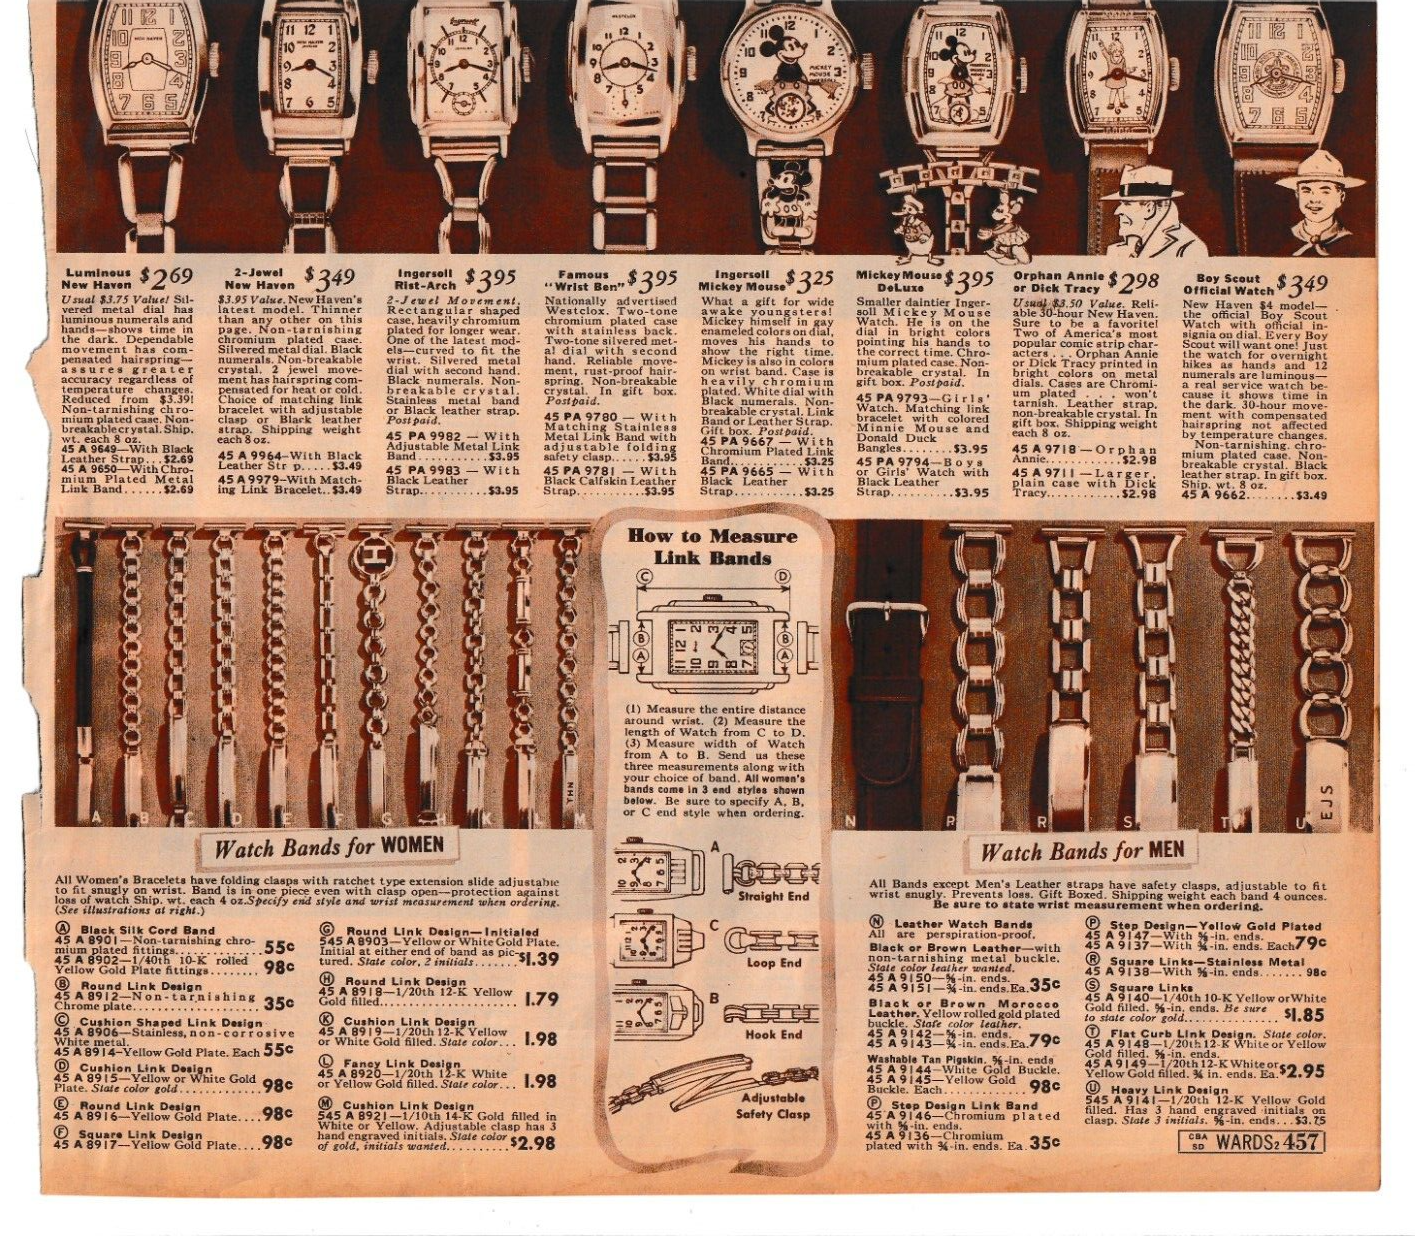 Luminous
New Haven $2.69
Usual $3.75 Value! Sil-
vered metal dial has
luminous numerals and
hands—shows time in
the dark. Dependable
movement has com-
pensated hairspring—
assures greater
accuracy regardless of
temperature changes.
Reduced from $3.39!
Non-tarnishing chro-
mium plated case. Non-
breakable crystal. Ship.
wt. each 8 oz.
45 A 9649—With Black
Leather Strap...$2.69
45 A 9650—With Chro-
mium Plated Metal
Link Band......$2.69
2-Jewel
New Haven $3.49
$3.95 Value. New Haven's
latest model. Thinner
than any other on this
page. Non-tarnishing
chromium plated case.
Silvered metal dial. Black
numerals. Non-breakable
crystal. 2 jewel move-
ment has hairspring com-
pensated for heat or cold.
Choice of matching link
bracelet with adjustable
clasp or Black leather
strap. Shipping weight
each 8 oz.
45 A 9964—With Black
Leather Str p.....$3.49
45 A 9979—With Match-
ing Link Bracelet..$3.49
Ingersoll
Rist-Arch $3.95
2-Jewel Movement.
Rectangular shaped
case, heavily chromium
plated for longer wear.
One of the latest mod-
els—curved to fit the
wrist. Silvered metal
dial with second hand.
Black numerals. Non-
breakable crystal.
Stainless metal band
or Black leather strap.
Postpaid.
45 PA 9982 — With
Adjustable Metal Link
Band..............$3.95
45 PA 9983 — With
Black Leather
Strap..........$3.95
Famous
"Wrist Ben" $3.95
Nationally advertised
Westclox. Two-tone
chromium plated case
with stainless back.
Two-tone silvered met-
al dial with second
hand. Reliable move-
ment, rust-proof hair-
spring. Non-breakable
crystal. In gift box.
Postpaid.
45 PA 9780 — With
Matching Stainless
Metal Link Band with
adjustable folding
safety clasp.....$3.95
45 PA 9781 — With
Black Calfskin Leather
Strap..........$3.95
Ingersoll
Mickey Mouse $3.25
What a gift for wide
awake youngsters!
Mickey himself in gay
enameled colors on dial,
moves his hands to
show the right time.
Mickey is also in colors
on wrist band. Case is
heavily chromium
plated. White dial with
Black numerals. Non-
breakable crystal. Link
Band or Leather Strap.
Gift box. Postpaid.
45 PA 9667 — With
Chromium Plated Link
Band..............$3.25
45 PA 9665 — With
Black Leather
Strap..........$3.25
Mickey Mouse
DeLuxe $3.95
Smaller daintier Inger-
soll Mickey Mouse
Watch. He is on the
dial in bright colors
pointing his hands to
the correct time. Chro-
mium plated case. Non-
breakable crystal. In
gift box. Postpaid.
45 PA 9793—Girls'
Watch. Matching link
bracelet with colored
Minnie Mouse and
Donald Duck
Bangles........$3.95
45 PA 9794—Boys
or Girls' Watch with
Black Leather
Strap..........$3.95
Orphan Annie
or Dick Tracy $2.98
Usual $3.50 Value. Reli-
able 30-hour New Haven.
Sure to be a favorite!
Two of America's most
popular comic strip char-
acters . . . Orphan Annie
or Dick Tracy printed in
bright colors on metal
dials. Cases are Chromi-
um plated . . . won't
tarnish. Leather strap,
non-breakable crystal. In
gift box. Shipping weight
each 8 oz.
45 A 9718—Orphan
Annie..............$2.98
45 A 9711—Larger,
plain case with Dick
Tracy............$2.98
Boy Scout
Official Watch $3.49
New Haven $4 model—
the official Boy Scout
Watch with official in-
signia on dial. Every Boy
Scout will want one! Just
the watch for overnight
hikes as hands and 12
numerals are luminous—
a real service watch be-
cause it shows time in
the dark. 30-hour move-
ment with compensated
hairspring not affected
by temperature changes.
Non-tarnishing, chro-
mium plated case. Non-
breakable crystal. Black
leather strap. In gift box.
Ship. wt. 8 oz.
45 A 9662.......$3.49
How to Measure
Link Bands
C D
B B
A A
(1) Measure the entire distance
around wrist. (2) Measure the
length of Watch from C to D.
(3) Measure width of Watch
from A to B. Send us these
three measurements along with
your choice of band. All women's
bands come in 3 end styles shown
below. Be sure to specify A, B,
or C end style when ordering.
A
Straight End
C
Loop End
B
Hook End
Adjustable
Safety Clasp
A B C D E F G H K L M
THN
N P R S T U
EJS
Watch Bands for WOMEN
All Women's Bracelets have folding clasps with ratchet type extension slide adjustable
to fit snugly on wrist. Band is in one piece even with clasp open—protection against
loss of watch Ship. wt. each 4 oz. Specify end style and wrist measurement when ordering.
(See illustrations at right.)
A Black Silk Cord Band
45 A 8901—Non-tarnishing chro-
mium plated fittings............55c
45 A 8902—1/40th 10-K rolled
Yellow Gold Plate fittings.......98c
B Round Link Design
45 A 8912—Non-tarnishing
Chrome plate...............35c
C Cushion Shaped Link Design
45 A 8906—Stainless, non-corrosive
White metal.
45 A 8914—Yellow Gold Plate. Each 55c
D Cushion Link Design
45 A 8915—Yellow or White Gold
Plate. State color gold...........98c
E Round Link Design
45 A 8916—Yellow Gold Plate....98c
F Square Link Design
45 A 8917—Yellow Gold Plate....98c
G Round Link Design—Initialed
545 A 8903—Yellow or White Gold Plate.
Initial at either end of band as pic-
tured. State color, 2 initials.......$1.39
H Round Link Design
45 A 8918—1/20th 12-K Yellow
Gold filled.....................1.79
K Cushion Link Design
45 A 8919—1/20th 12-K Yellow
or White Gold filled. State color...1.98
L Fancy Link Design
45 A 8920—1/20th 12-K White
or Yellow Gold filled. State color...1.98
M Cushion Link Design
545 A 8921—1/10th 14-K Gold filled in
White or Yellow. Adjustable clasp has 3
hand engraved initials. State color
of gold, initials wanted..........$2.98
Watch Bands for MEN
All Bands except Men's Leather straps have safety clasps, adjustable to fit
wrist snugly. Prevents loss. Gift Boxed. Shipping weight each band 4 ounces.
Be sure to state wrist measurement when ordering.
N Leather Watch Bands
All are perspiration-proof.
Black or Brown Leather—with
non-tarnishing metal buckle.
State color leather wanted.
45 A 9150—⅝-in. ends.
45 A 9151—¾-in. ends. Ea. 35c
Black or Brown Morocco
Leather. Yellow rolled gold plated
buckle. State color leather.
45 A 9142—⅝-in. ends.
45 A 9143—¾-in. ends. Ea. 79c
Washable Tan Pigskin. ⅝-in. ends
45 A 9144—White Gold Buckle.
45 A 9145—Yellow Gold
Buckle. Each.............98c
P Step Design Link Band
45 A 9146—Chromium plated
with ⅝-in. ends.
45 A 9136—Chromium
plated with ¾-in. ends. Ea. 35c
P Step Design—Yellow Gold Plated
45 A 9147—With ⅝-in. ends.
45 A 9137—With ¾-in. ends. Each 79c
R Square Links—Stainless Metal
45 A 9138—With ⅝-in. ends.......98c
S Square Links
45 A 9140—1/40th 10-K Yellow or White
Gold filled. ⅝-in. ends. Be sure
to state color gold................$1.85
T Flat Curb Link Design. State color.
45 A 9148—1/20th 12-K White or Yellow
Gold filled. ⅝-in. ends.
45 A 9149—1/20th 12-K White or
Yellow Gold filled. ¾ in. ends. Ea. $2.95
U Heavy Link Design
545 A 9141—1/20-12-K Yellow Gold
filled. Has 3 hand engraved initials on
clasp. State 3 initials. ⅝-in. ends...$3.75
CBA
SD WARDS2 457